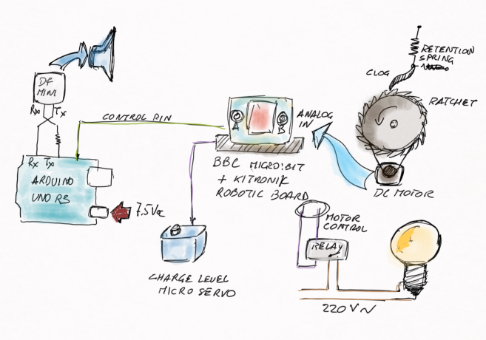 RETENTION
SPRING
CLOG
RATCHET
DF
MINI
Rx Tx
CONTROL PIN
ANALOG
IN
Rx Tx
ARDUINO
UNO R3
7.5Vdc
BBC MICRO:BIT
+ KITRONIK
ROBOTIC BOARD
DC MOTOR
MOTOR
CONTROL
RELAY
CHARGE LEVEL
MICRO SERVO
220 V~